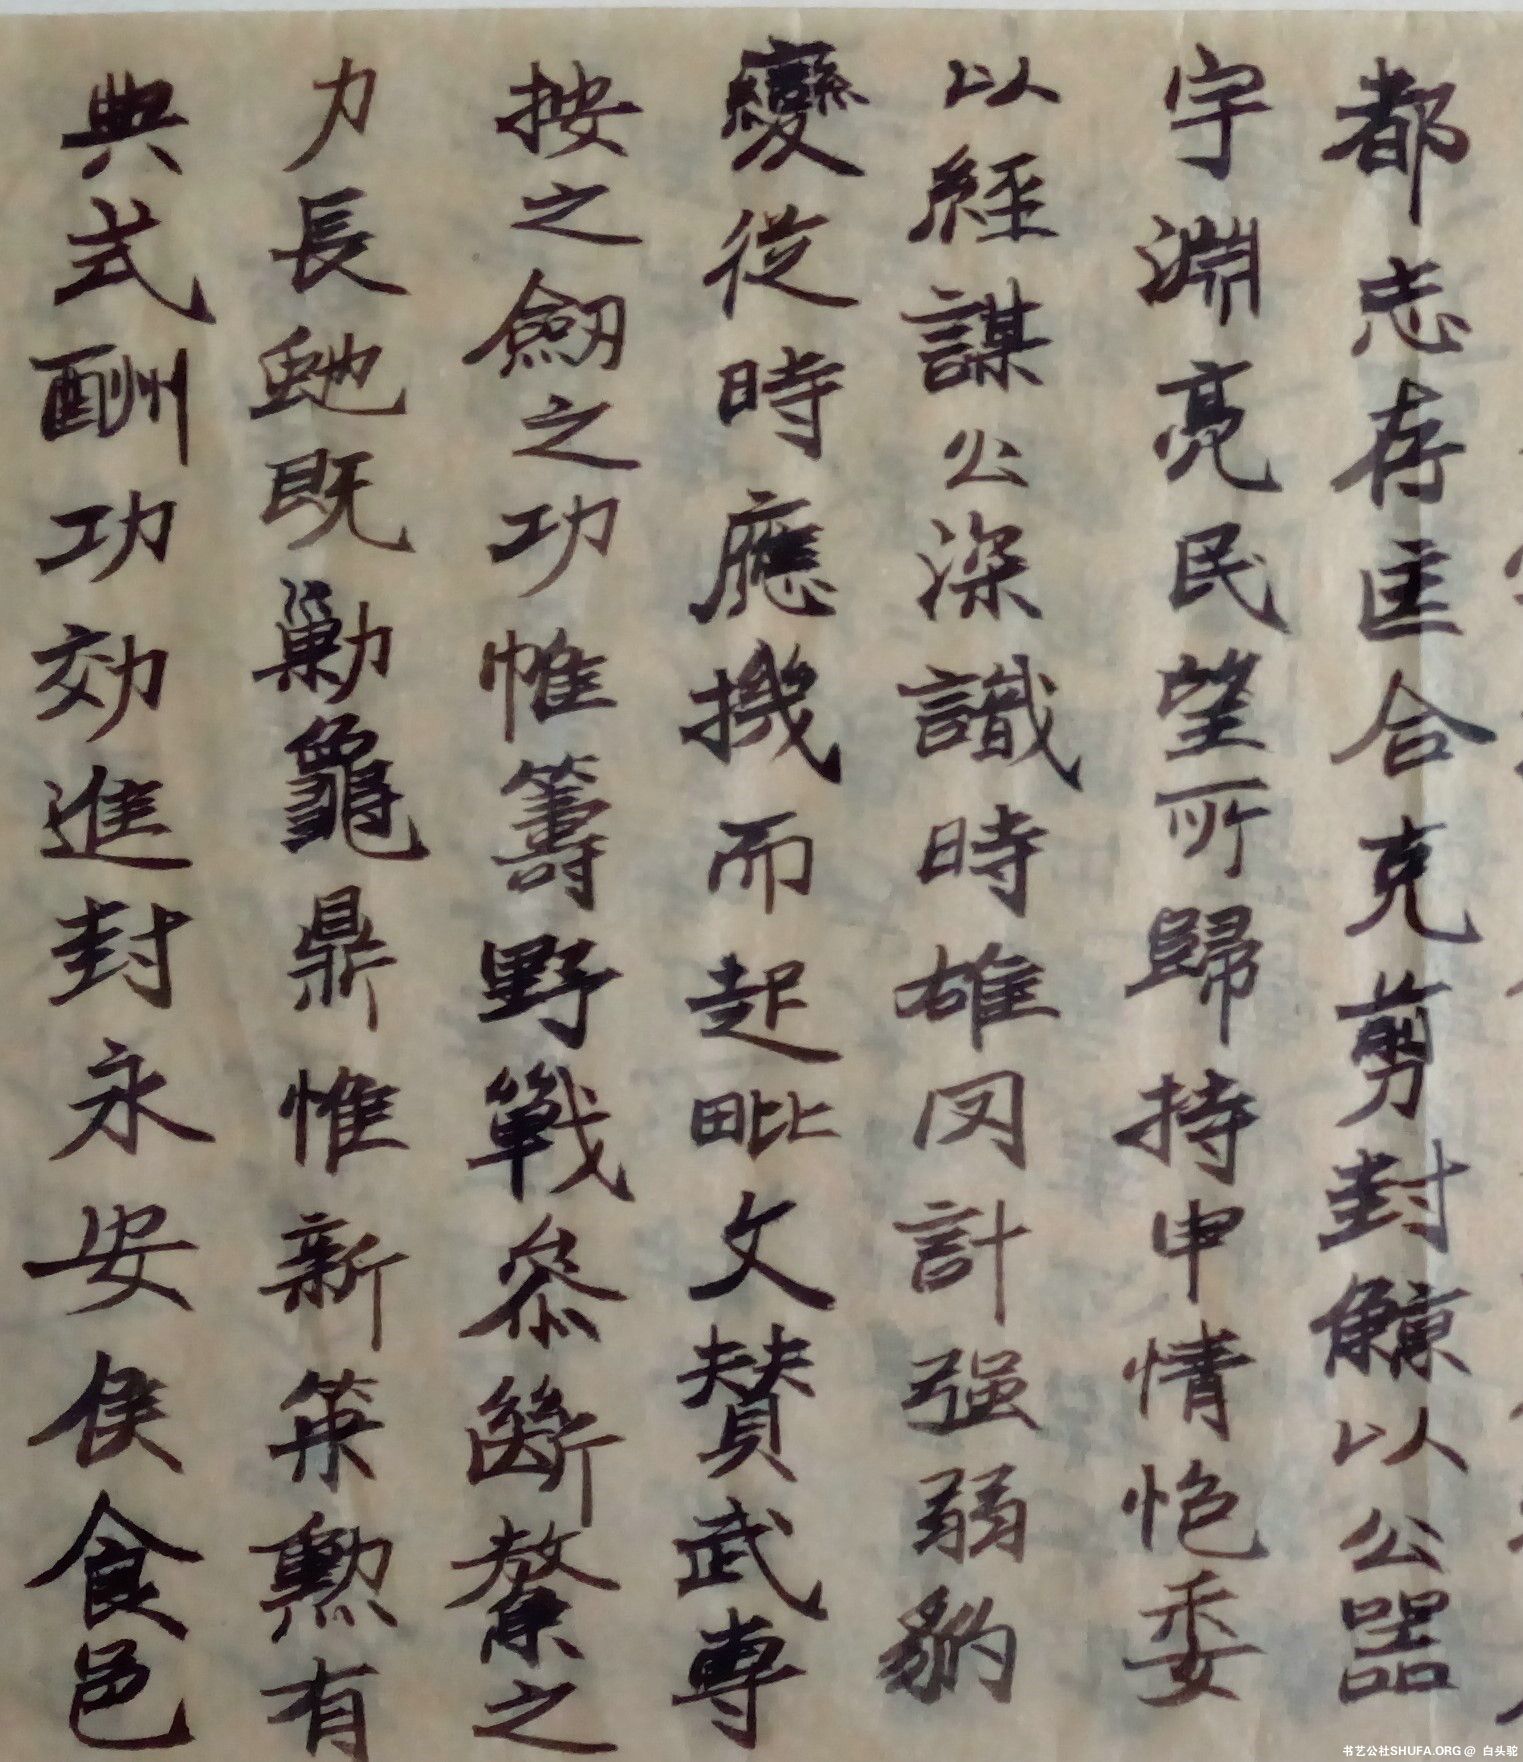 都志存匡合克剪封鯨以公器
宇淵亮民望所歸持申情㤿委
以經謀公深識時雄罔計强弱豹
變從時應機而起毗文贊武專
按之劒之功帷籌野戰叅斷鼇之
力長虵既勦龜鼎惟新策勲有
典式酬功効進封永安侯食邑
书艺公社SHUFA.ORG @ 白头鸵